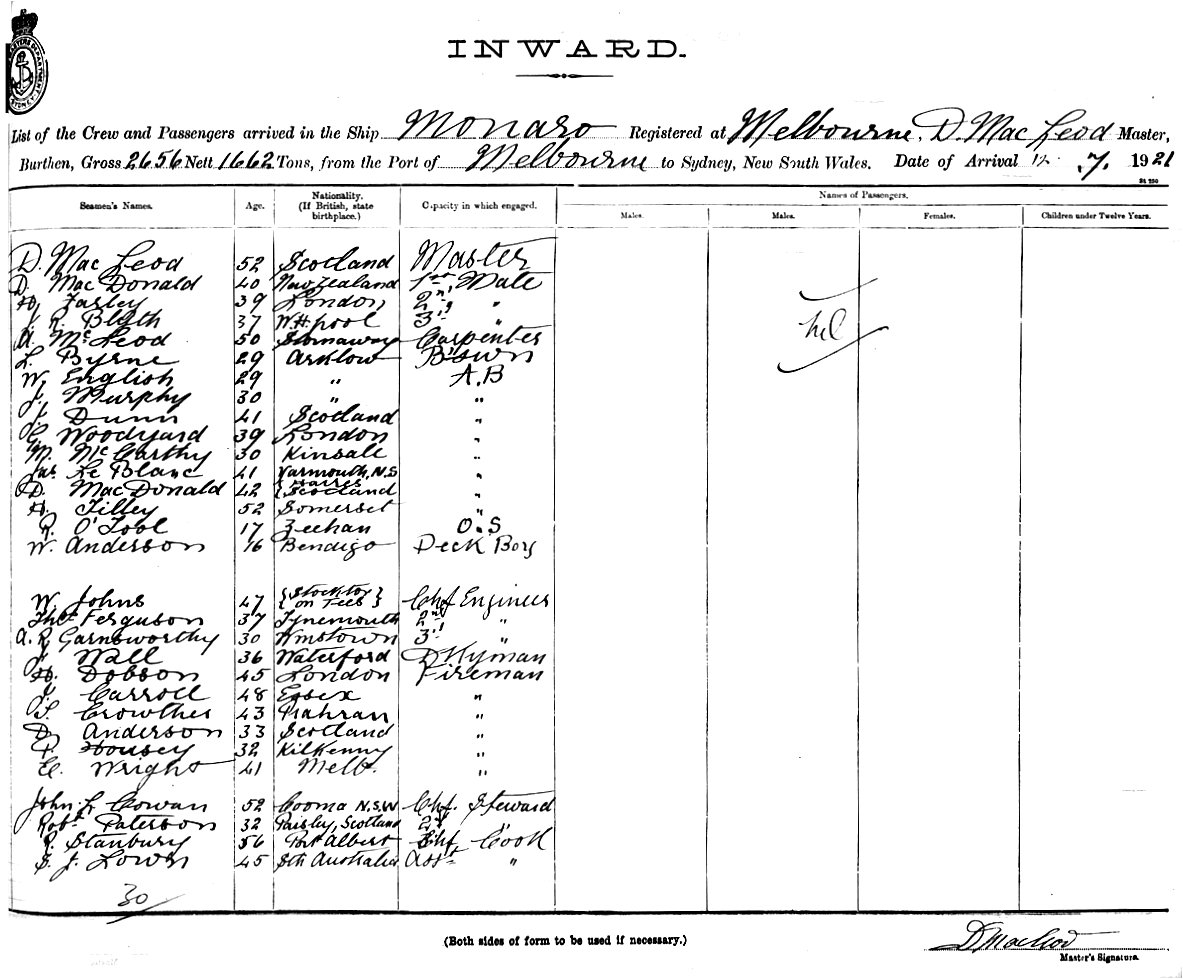 INWARD.
List of the Crew and Passengers arrived in the Ship Monaro Registered at Melbourne, D. Mac Leod Master,
Burthen, Gross 2656 Nett 1662 Tons, from the Port of Melbourne to Sydney, New South Wales. Date of Arrival 12 . 7. 1921
Seamen's Names. Age. Nationality. (If British, state birthplace.) Capacity in which engaged. Names of Passengers.
Males. Males. Females. Children under Twelve Years.
D. Mac Leod 52 Scotland Master
D. Mac Donald 40 New Zealand 1st Mate
H. Farley 39 London 2nd "
R. Blyth 37 W.H.pool 3rd "
A. McLeod 50 Stornaway Carpenter
L. Byrne 29 Arklow B'swn
W. English 29 " A.B
J. Murphy 30 " "
J. Dunn 41 Scotland "
G. Woodyard 39 London "
M. McCarthy 30 Kinsale "
Jas. Le Blanc 41 Yarmouth, N.S "
D. MacDonald 42 { Harris Scotland "
H. Tilley 52 Somerset "
R. O'Tool 17 Zeehan O.S
W. Anderson 16 Bendigo Deck Boy
W. Johns 47 {Stockton on Tees} Chf Engineer
Thos Ferguson 37 Tynemouth 2nd "
A. R. Garnsworthy 30 Wmstown 3rd "
J. Wall 36 Waterford D'Kyman
H. Dobson 45 London Fireman
J. Carroll 48 Essex "
T. Crowther 43 Prahran "
D. Anderson 33 Scotland "
P. Housey 32 Kilkenny "
E. Wright 41 Melb. "
John L Cowan 52 Cooma N.S.W Chf. Steward
Robt. Paterson 32 Paisley, Scotland 2nd "
R. Stanbury 56 Port Albert Chf Cook
S. J. Lown 45 Sth Australia Asst "
30
nil
(Both sides of form to be used if necessary.)
D. MacLeod
Master's Signature.